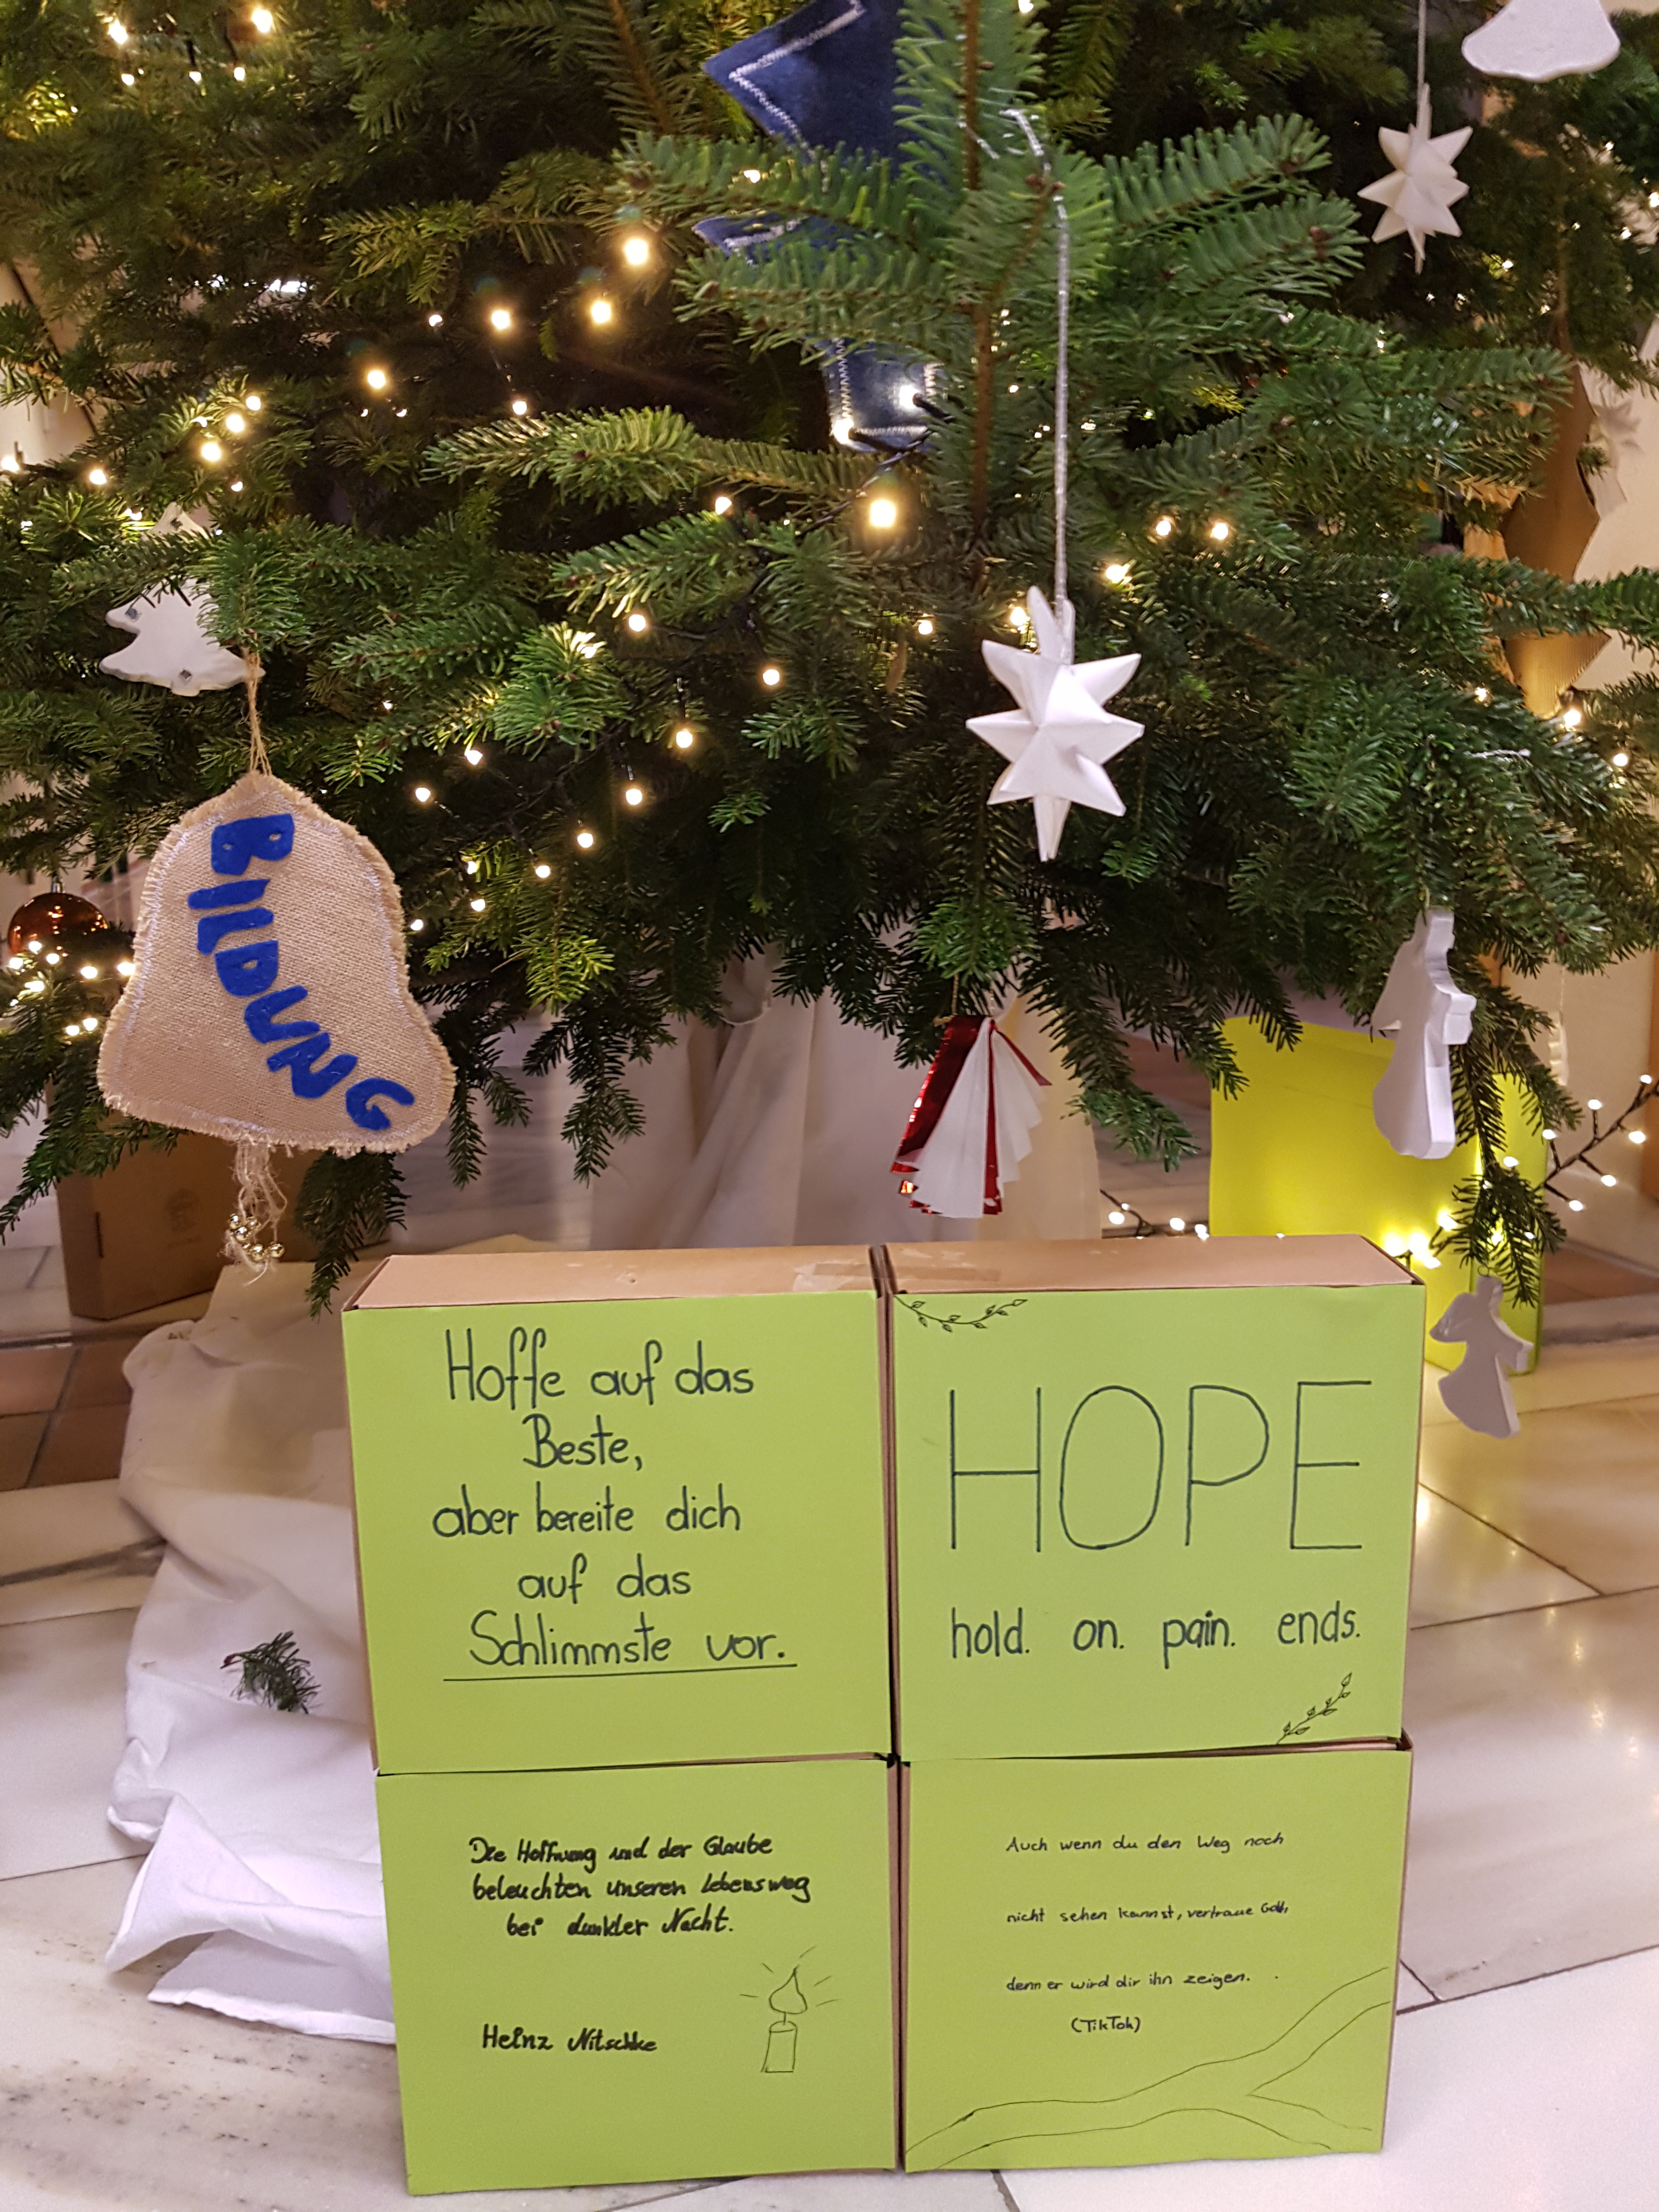 BILDUNG
Hoffe auf das
Beste,
aber bereite dich
auf das
Schlimmste vor.
HOPE
hold. on. pain. ends.
Die Hoffnung und der Glaube
beleuchten unseren Lebensweg
bei dunkler Nacht.
Heinz Nitschke
Auch wenn du den Weg noch
nicht sehen kannst, vertraue Gott,
denn er wird dir ihn zeigen.
(TikTok)